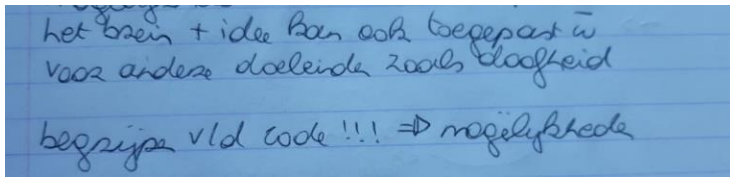 het brein + idee kan ook toegepast w̄
voor andere doeleinde zoals doofheid
begrijpe v/d code !!! => mogelijkhede